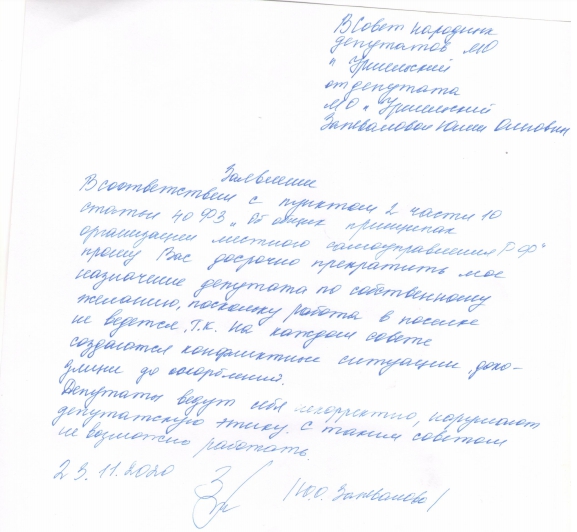 В Совет народных
депутатов МО
"Уршельский
от депутата
МО "Уршельский
Запеваловой Юлии Олеговны
Заявление
В соответствии с пунктом 2 части 10
статьи 40 ФЗ "Об общих принципах
организации местного самоуправления РФ"
прошу Вас досрочно прекратить мое
назначение депутата по собственному
желанию, поскольку работа в поселке
не ведется, т.к. на каждом совете
создаются конфликтные ситуации, дохо-
дящие до оскорблений.
Депутаты ведут себя некорректно, нарушают
депутатскую этику. С таким советом
не возможно работать.
23.11.2020 /Ю.О. Запевалова/